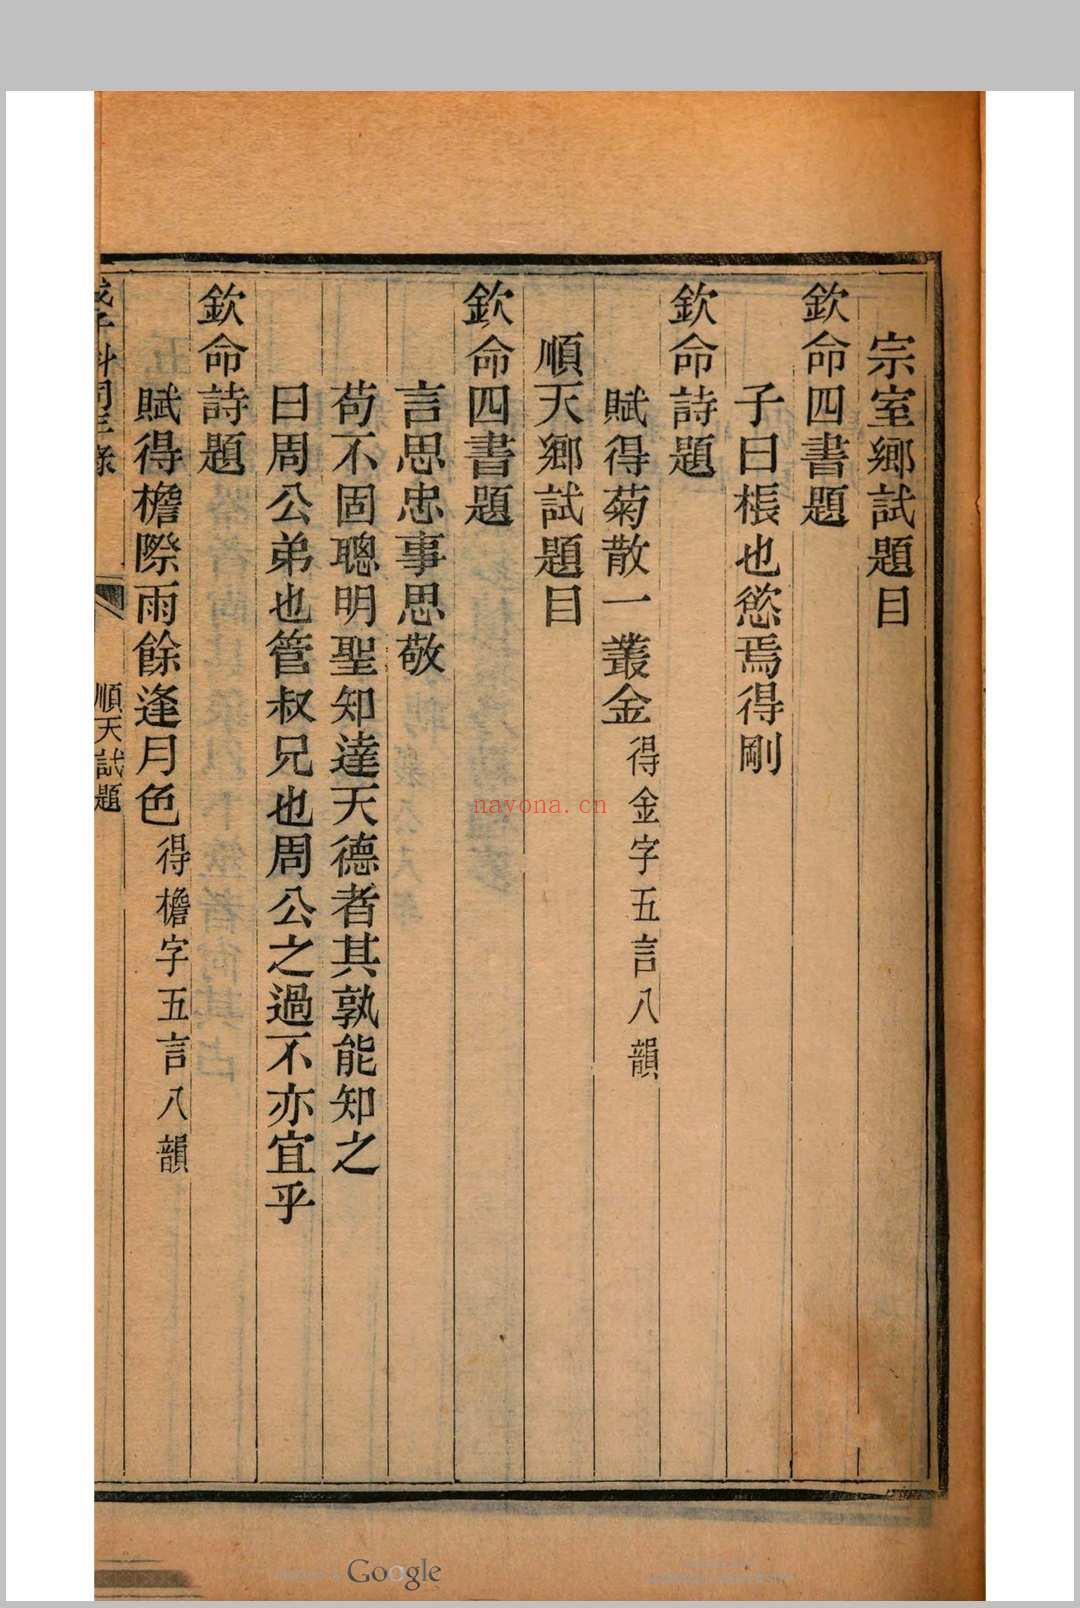 宗室鄉試題目
欽命四書題
子曰棖也慾焉得剛
欽命詩題
賦得菊散一叢金得金字五言八韻
順天鄉試題目
欽命四書題
言思忠事思敬
苟不固聰明聖知達天德者其孰能知之
曰周公弟也管叔兄也周公之過不亦宜乎
欽命詩題
賦得檐際雨餘逢月色得檐字五言八韻
順天試題
nayona.cn
Google